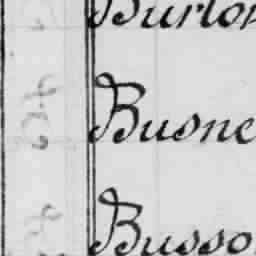 Burlon
Busne
Busso